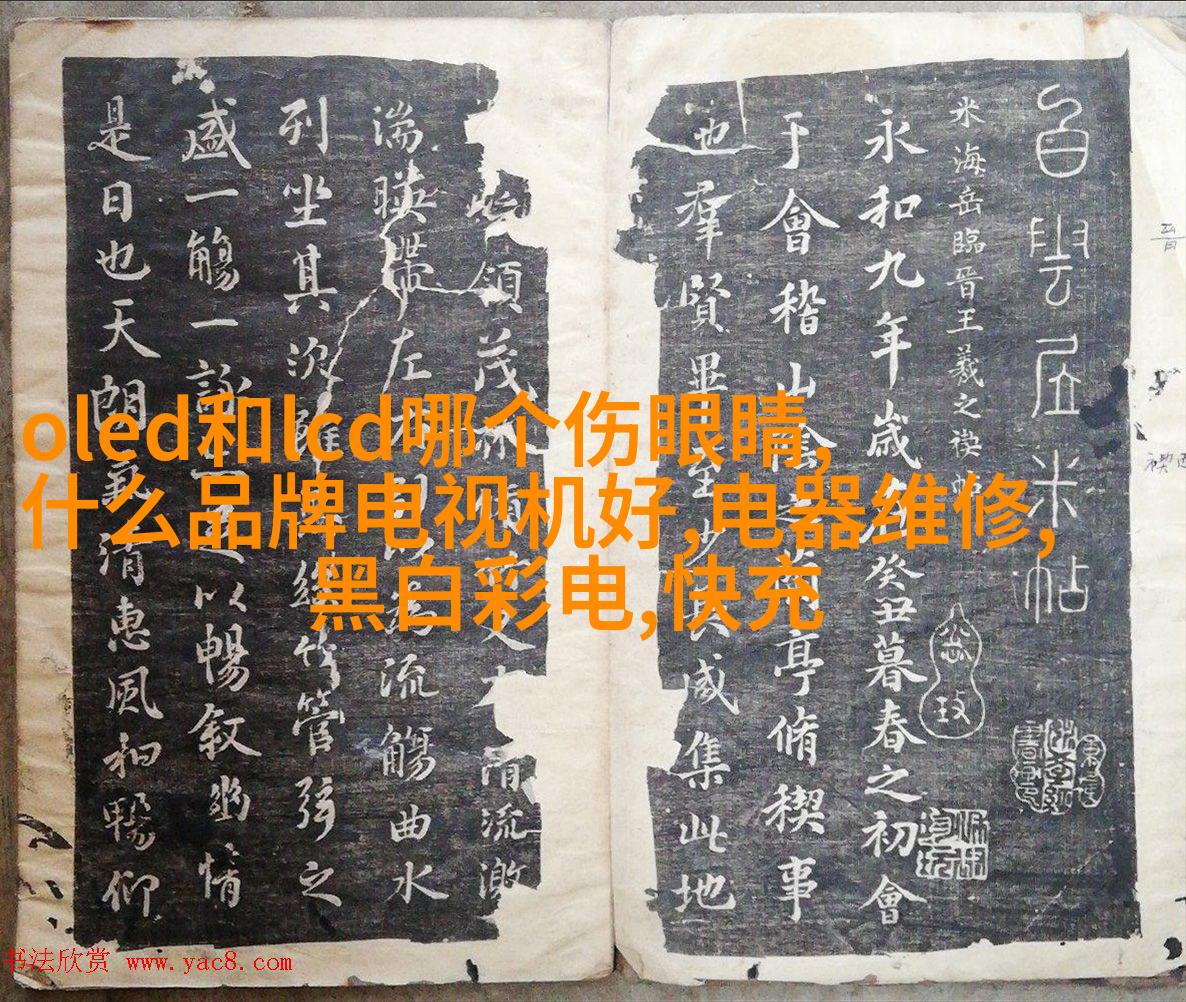 白雲居米帖
米海岳臨晉王羲之禊帖
永和九年歲在癸丑暮春之初會
于會稽山陰之蘭亭脩禊事
也羣賢畢至少長咸集此地
領茂林清流激
湍暎帶左右引以為流觴曲水
列坐其次雖無絲竹管弦之
盛一觴一詠亦足以暢敘幽情
是日也天朗氣清惠風和暢仰
oled和lcd哪个伤眼睛,
什么品牌电视机好,电器维修,
黑白彩电,快充
书法欣赏 www.yac8.com